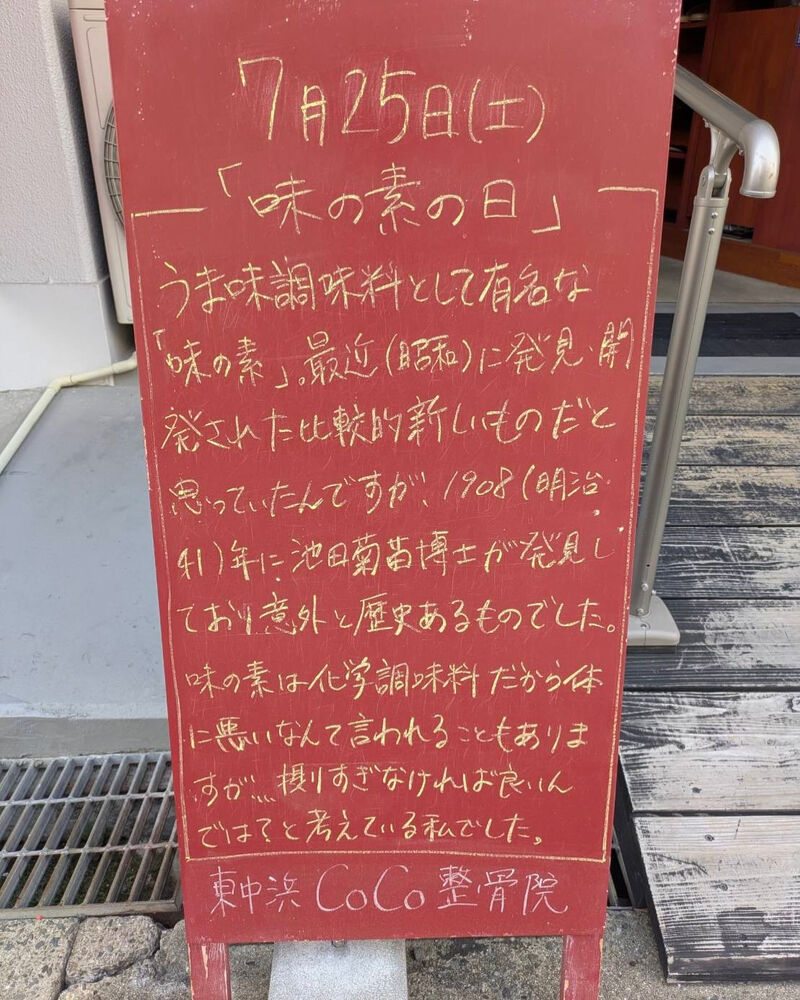 7月25日(土)
「味の素の日」
うま味調味料として有名な
「味の素」。最近(昭和)に発見・開
発された比較的新しいものだと
思っていたんですが、1908(明治
41)年に池田菊苗博士が発見し
ており意外と歴史あるものでした。
味の素は化学調味料だから体
に悪いなんて言われることもありま
すが…摂りすぎなければ良いん
では?と考えている私でした。
東中浜 CoCo 整骨院